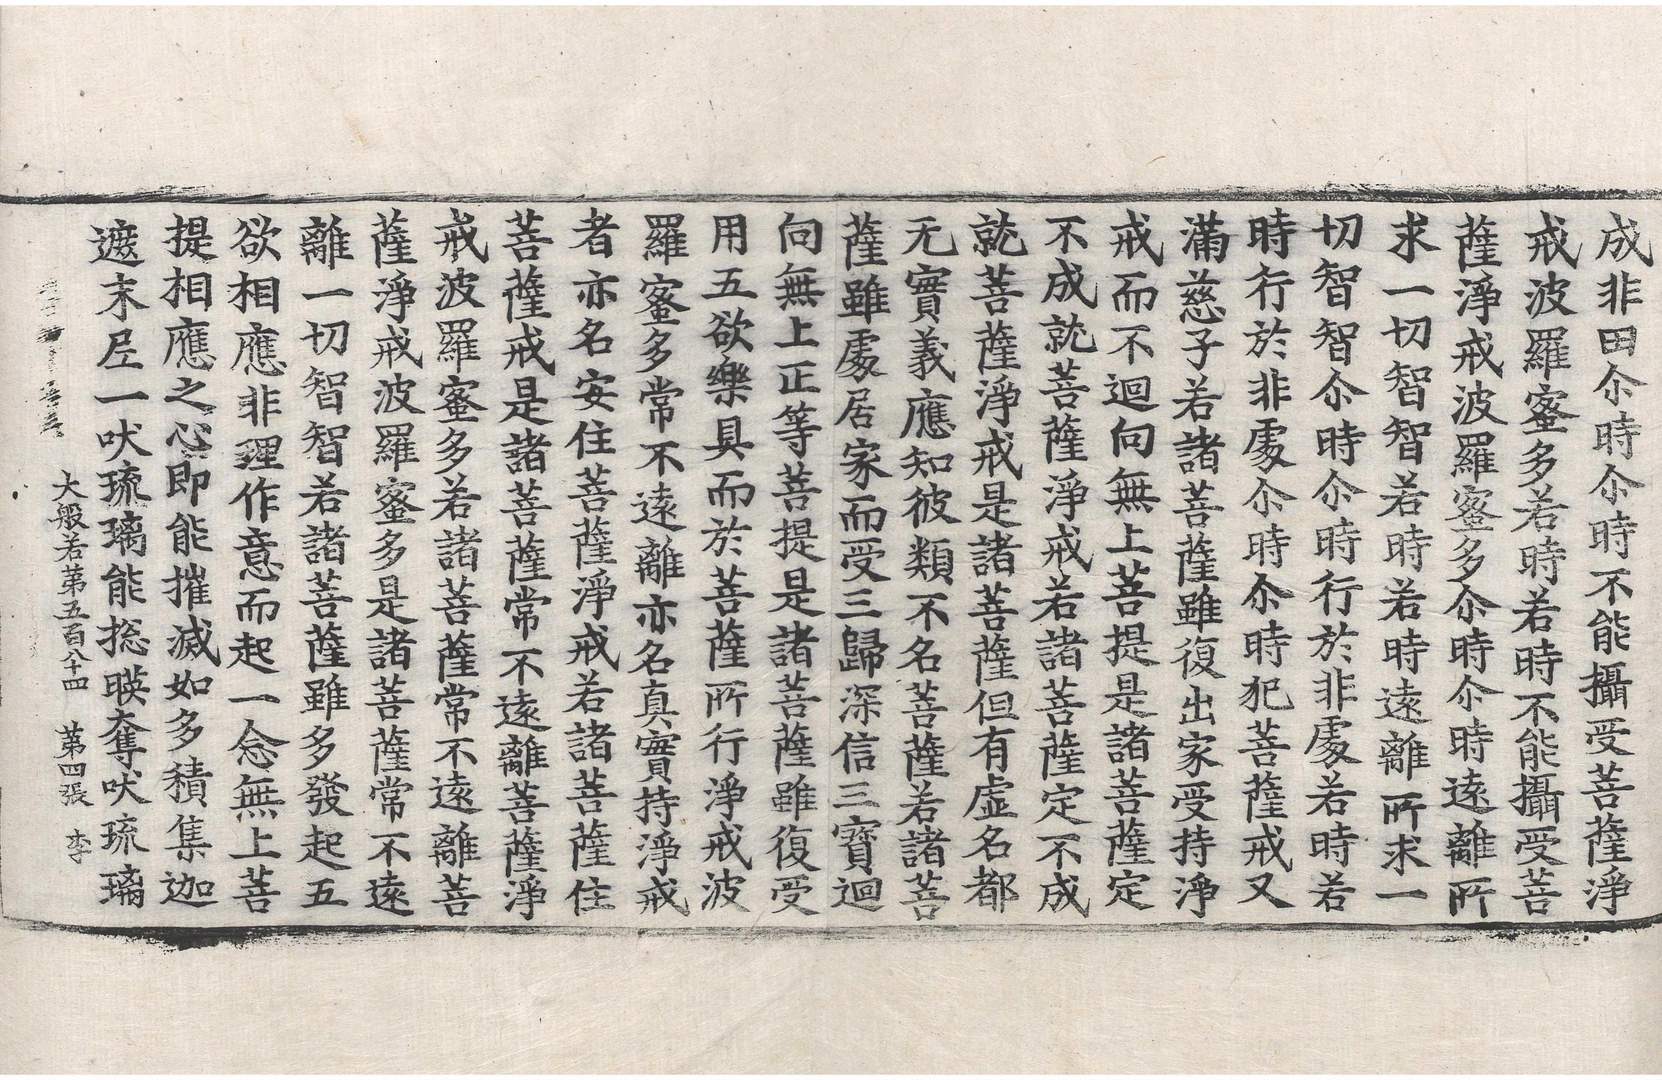 成非田尒時尒時不能攝受菩薩淨
戒波羅蜜多若時若時不能攝受菩
薩淨戒波羅蜜多尒時尒時遠離所
求一切智智若時若時遠離所求一
切智智尒時尒時行於非處若時若
時行於非處尒時尒時犯菩薩戒又
滿慈子若諸菩薩雖復出家受持淨
戒而不迴向無上菩提是諸菩薩定
不成就菩薩淨戒若諸菩薩定不成
就菩薩淨戒是諸菩薩但有虛名都
无實義應知彼類不名菩薩若諸菩
薩雖處居家而受三歸深信三寶迴
向無上正等菩提是諸菩薩雖復受
用五欲樂具而於菩薩所行淨戒波
羅蜜多常不遠離亦名真實持淨戒
者亦名安住菩薩淨戒若諸菩薩住
菩薩戒是諸菩薩常不遠離菩薩淨
戒波羅蜜多若諸菩薩常不遠離菩
薩淨戒波羅蜜多是諸菩薩常不遠
離一切智智若諸菩薩雖多發起五
欲相應非理作意而起一念無上菩
提相應之心即能摧滅如多積集迦
遮末尼一吠琉璃能捴暎奪吠琉璃
大般若第五百八十四 第四張 李